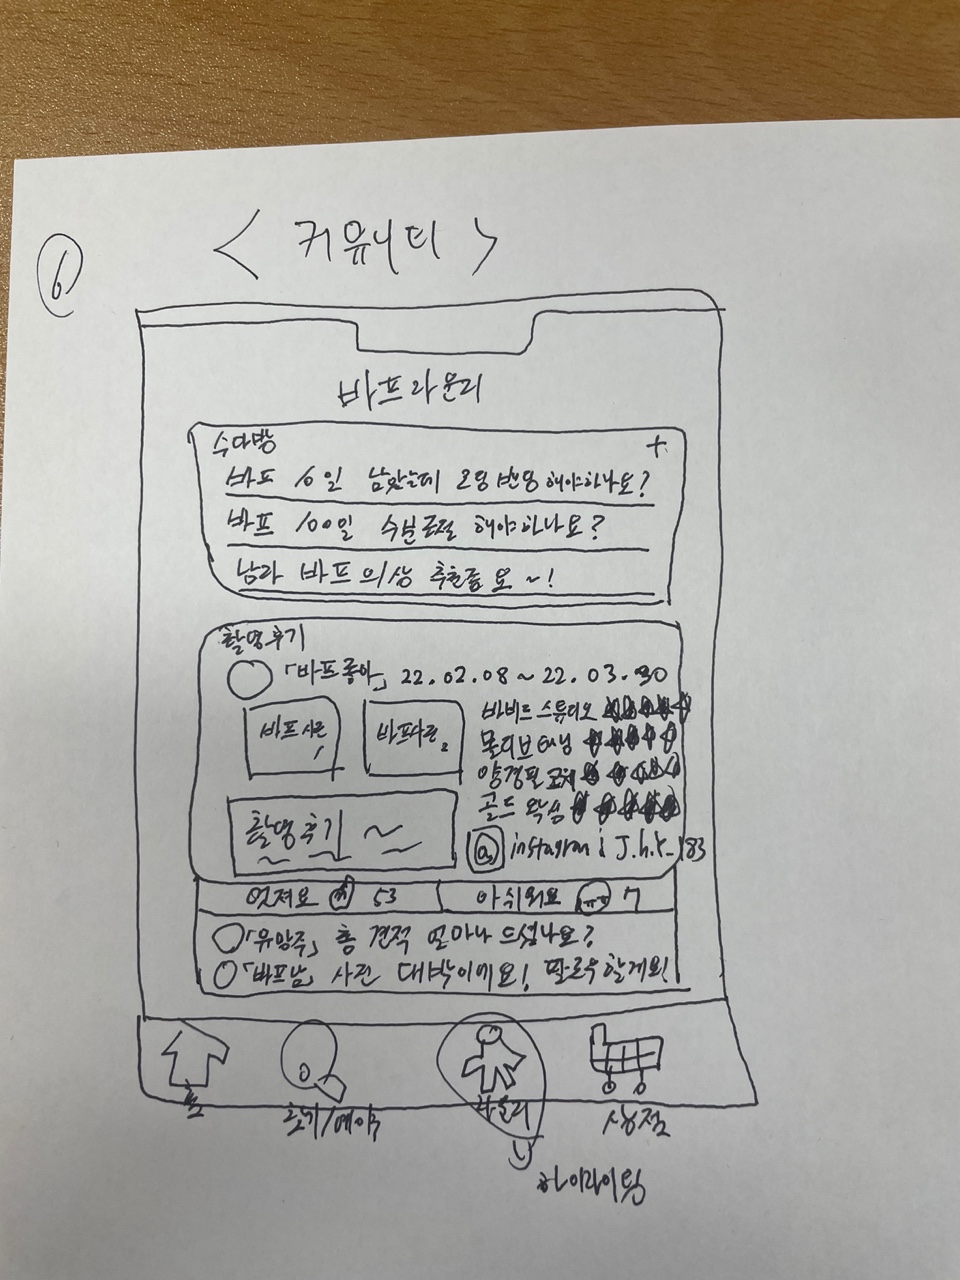 6
< 커뮤니티 >
바프라운지
수다방 +
바프 10일 남았는데 로딩 밴딩 해야하나요?
바프 100일 수분조절 해야하나요?
남자 바프 의상 추천좀요~!
촬영후기
「바프좋아」 22.02.08 ~ 22.03.30
바프사진 1
바프사진 2
바비드 스튜디오
몰디브 태닝
양경필 코치
골드 왁싱
촬영 후기 ~
@ instagram : J.h.k_183
멋져요 53
아쉬워요 7
「유망주」 총 견적 얼마나 드셨나요?
「바프남」 사진 대박이에요! 팔로우할게요!
홈
후기/예약
라운지
상점
하이라이팅